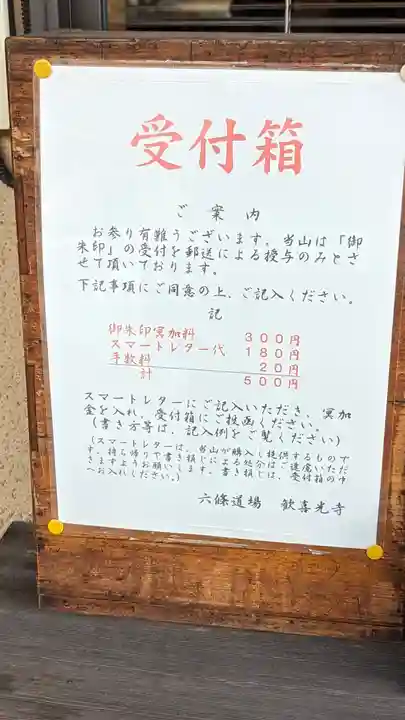 受付箱
ご案内
お参り有難うございます。当山は「御
朱印」の受付を郵送による授与のみとさ
せて頂いております。
下記事項にご同意の上、ご記入ください。
記
御朱印冥加料 300円
スマートレター代 180円
手数料 20円
計 500円
スマートレターにご記入いただき、冥加
金を入れ、受付箱にご投函ください。
(書き方等は、記入例をご覧ください)
(スマートレターは、当山が購入し提供するもので
す。持ち帰りや書き損じによる処分はご遠慮いただ
きますようお願いします。書き損じは、受付箱の中
へお入れください。)
六條道場 歓喜光寺